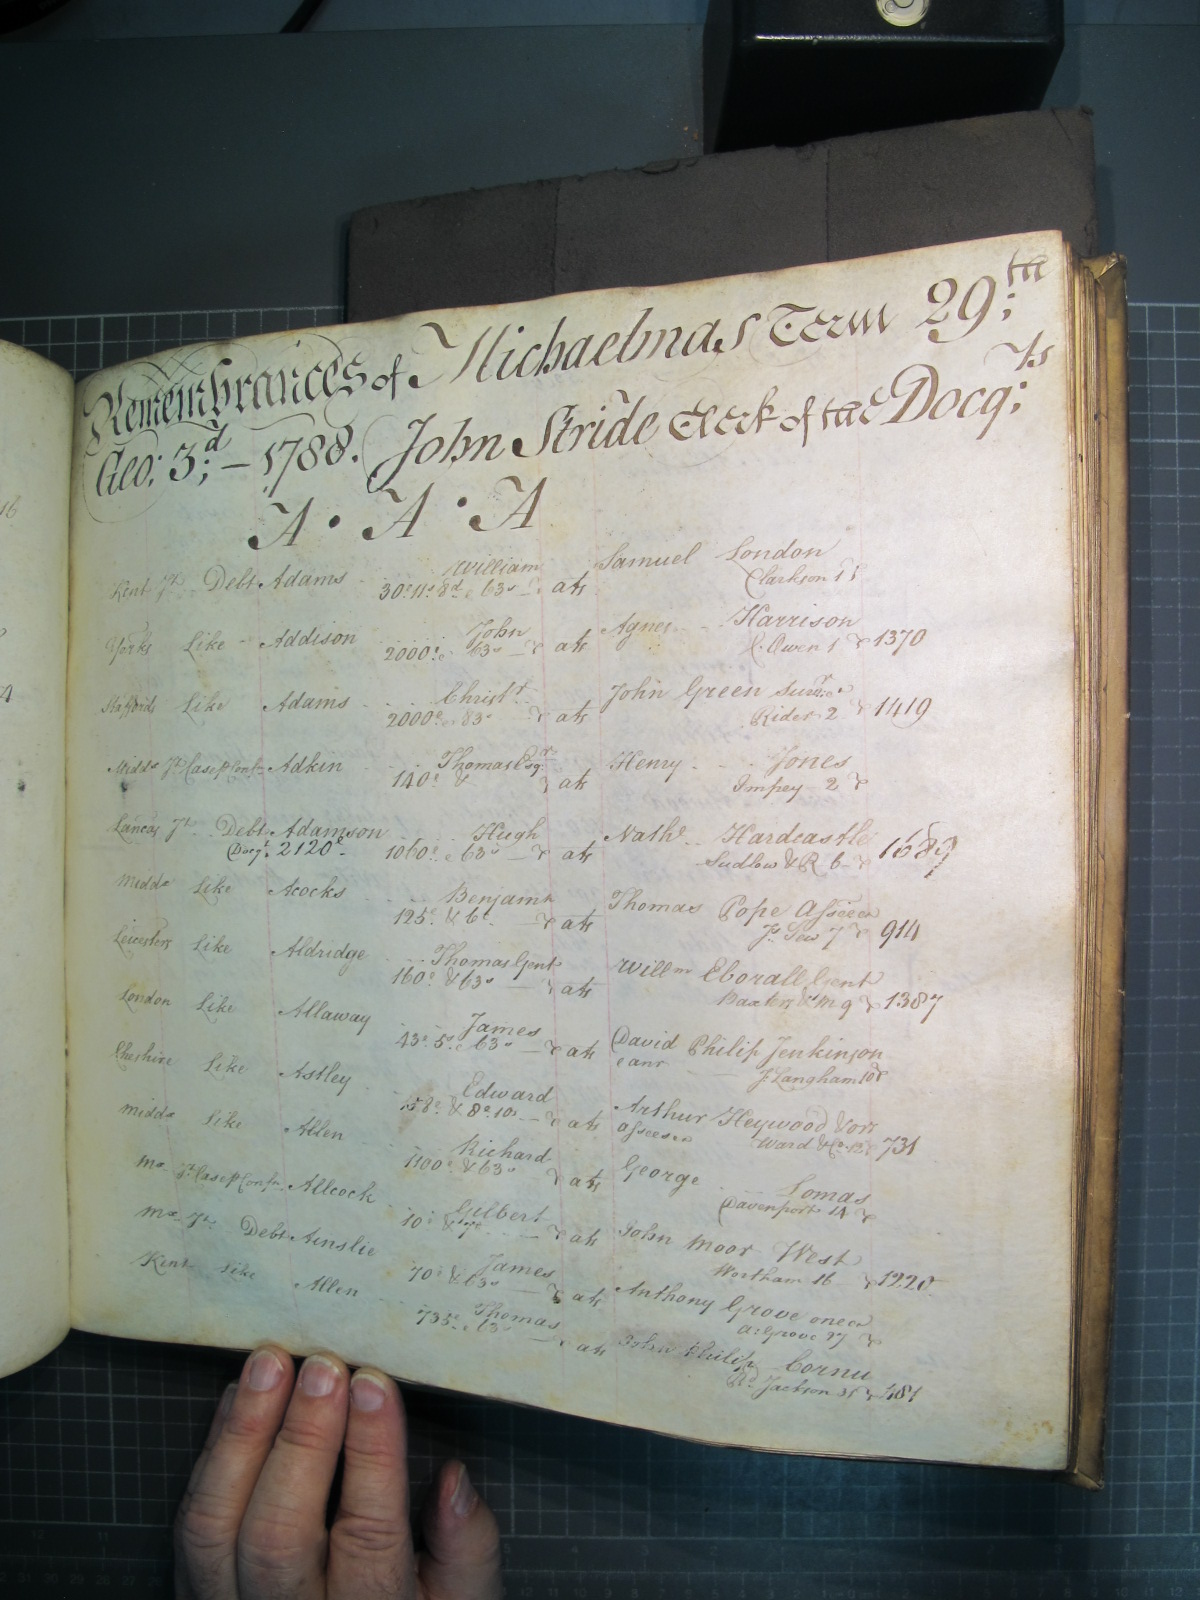 Remembrances of Michaelmas Term 29:th
Geo: 3;d – 1788. John Stride Clerk of the Docq:ts
A · A · A
Kent Jt. Debt Adams William ats Samuel London
30£ 11s 8d & 63s Clarkson 1
Yorks Like Addison John ats Agnes Harrison
2000£ & 63s Owen 1 1370
Staffords Like Adams Christr ats John Green
2000£ & 83s Rider 2 1419
Midds Jt Case Adkin Thomas Esqr ats Henry Jones
140£ & Impey 2
Lancas Jt. Debt Adamson Hugh ats Nathl Hardcastle
Docqt. 2120£ 1060£ & 63s Sudlow & R 6 1683
Midds Like Acocks Benjamn ats Thomas Pope Assee
125£ & 6£ 7 914
Leicesters Like Aldridge Thomas Gent ats Willm Eborall Gent
160£ & 63s Baxters & M 9 1387
London Like Allaway James ats David Philip Jenkinson
43£ 5s & 63s & anr J. Langham 10
Cheshire Like Astley Edward ats Arthur Heywood & ors
58£ & 8£ 10s assees Ward & Co. 12 731
Midds Like Allen Richard ats George Lomas
1100£ & 63s Davenport 14
Mx Jt Case Allcock Gilbert ats John Moor West
10£ & Wortham 16 1220
Mx Jt. Debt Ainslie James ats Anthony Grove one &c
70£ & 63s A: Grove 17
Kent Like Allen Thomas ats John Philip Cornu
735£ & 63s Jackson 31 481
16
4